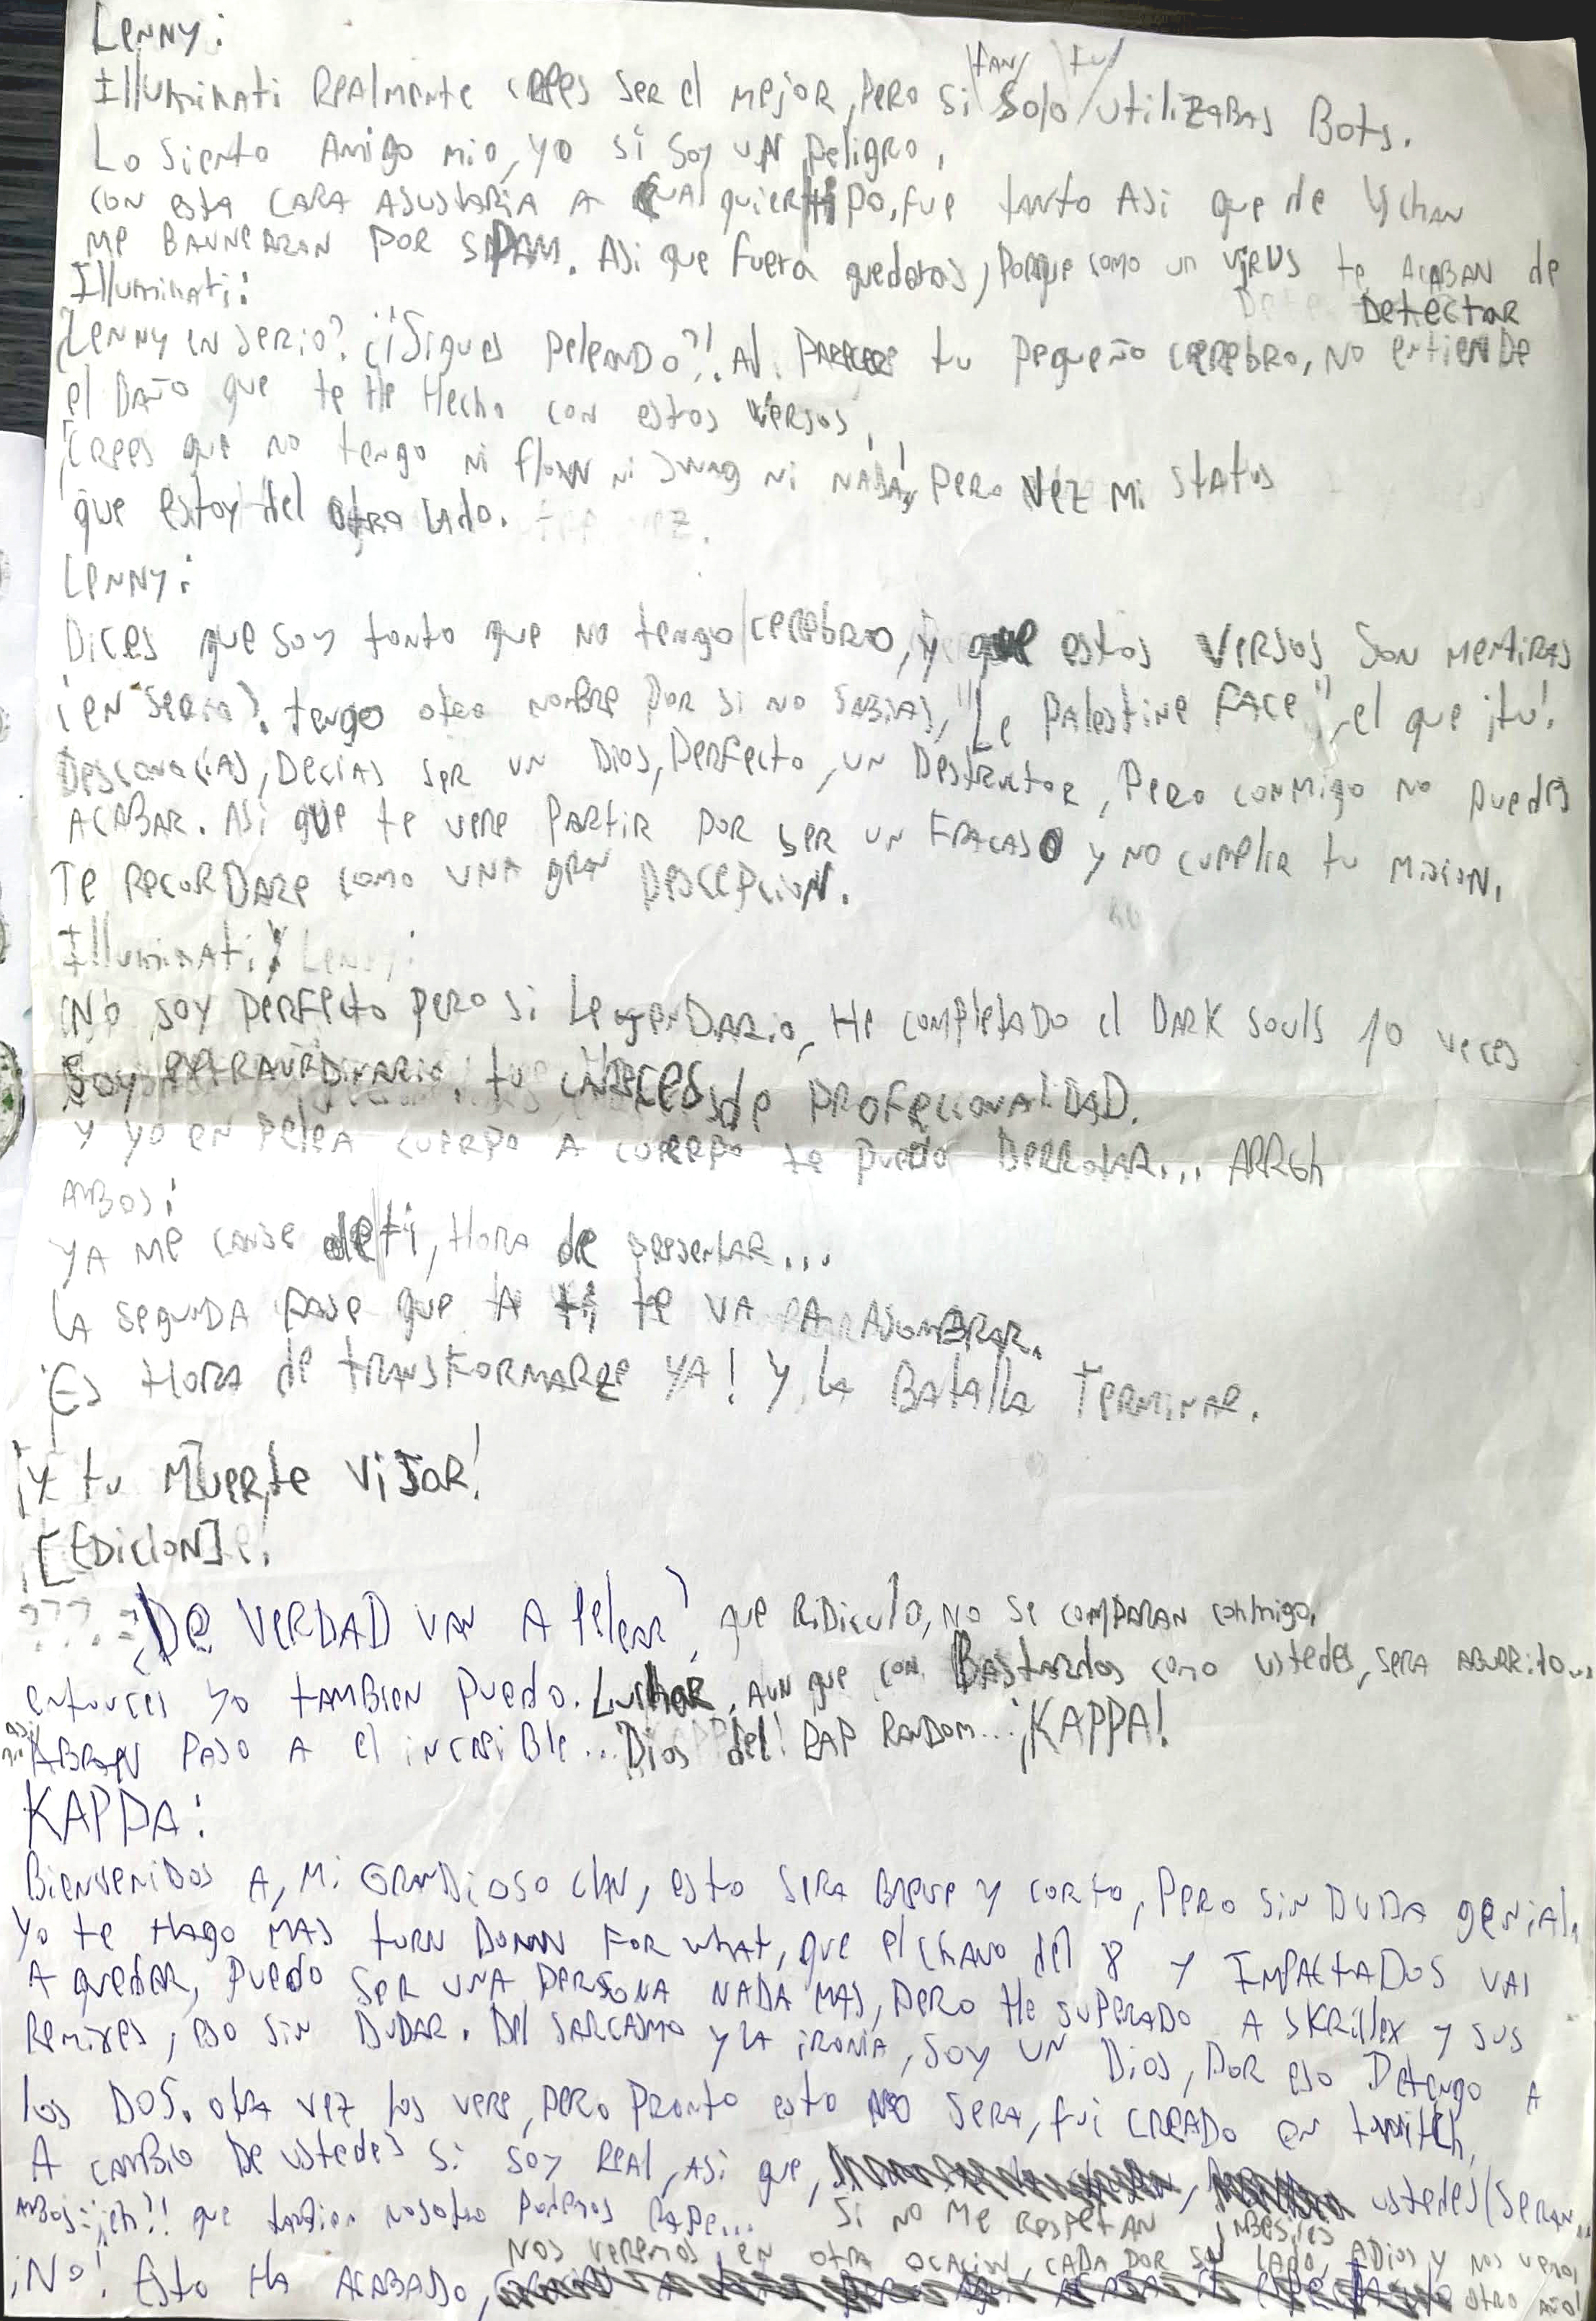 Lenny:
Illuminati Realmente crees ser el mejor, pero si tan solo tu utilizabas Bots.
Lo siento Amigo mio, yo si soy un peligro,
con esta cara asustaria a cualquier tipo, fue tanto Asi que de 4chan
me Bannearon por spam. Asi que fuera quedaras, porque como un virus te acaban de
Detectar
Illuminati:
¿Lenny en serio? ¡¿Sigues peleando?! Al parecer tu pequeño cerebro, no entiende
el Daño que te He Hecho con estos versos,
Crees que no tengo ni flow ni swag ni nada, pero vez mi status
que estoy del otro lado.
Lenny:
Dices que soy tonto que no tengo cerebro, y que estos versos son mentiras
¿en serio?. tengo otro nombre por si no sabias, "Le Palestine Face", el que ¡tu!
Desconocias, Decias ser un Dios, perfecto, un Destructor, Pero conmigo no puedes
Acabar. Asi que te vere partir por ser un Fracaso y no cumplir tu mision.
Te recordare como una gran Descepcion.
Illuminati:
No soy perfecto pero si Legendario, He completado el Dark Souls 10 veces
Soy extraurdinario, tu careces de profecionalidad.
y yo en pelea cuerpo a cuerpo te puedo Derrotar... ARRGh
Ambos:
Ya me canse de ti, Hora de presentar...
La segunda fase que a ti te va a asombrar.
¡Es Hora de transformarze YA! Y la Batalla Terminar.
¡Y tu Muerte Visar!
[Edicion]
???: ¿De VERDAD van a pelear? que Ridiculo, no se comparan conmigo.
entonces yo tambien puedo. Luchar, aun que con Bastardos como ustedes, sera aburrido...
Abran paso a el increible... Dios del RAP Random... ¡KAPPA!
KAPPA:
Bienvenidos A, Mi Grandioso clan, esto sera Breve y corto, pero sin Duda genial.
Yo te Hago mas turn Down For what, que el chavo del 8 y Impactados vai
A quedar, puedo ser una persona nada mas, pero He superado a Skrillex y sus
Remixes, eso sin Dudar. Del sarcasmo y la ironia, soy un Dios, por eso Detengo a
los DOS. otra vez los vere, pero pronto esto no sera, fui creado en twitch,
A cambio De ustedes si soy Real, asi que, ustedes seran...
Ambos: ¡¿eh?!! que tambien nosotro podemos Rape... Si no me respetan imbesiles
nos veremos en otra ocacion, cada por su lado, Adios y nos vemos
¡No! Esto Ha acabado, otro año!